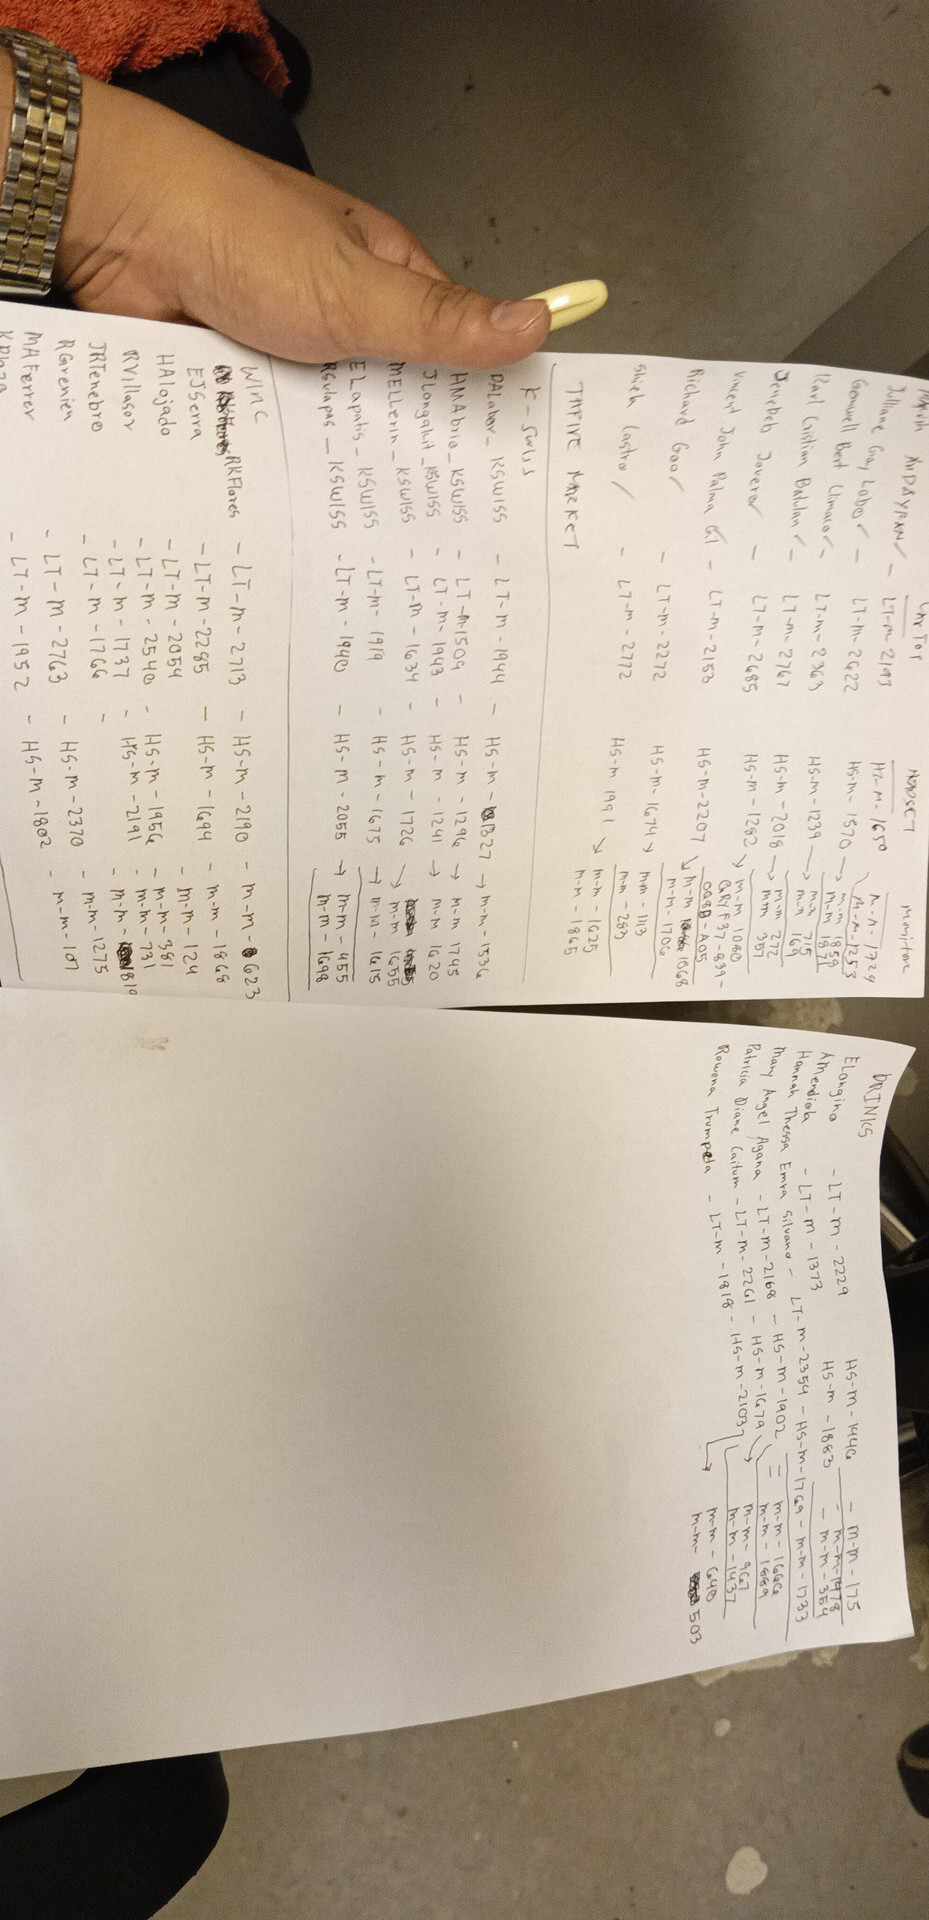 LAPTOP HEADSET Monitor
Marish ANDAYRAN ✓ - LT-M-2193 HS-M-1650 M-M-1729
Julliane Gray Lobo ✓ - LT-m-2622 HS-m-1570 → M-M-1253
Gemwell Bert Climaco ✓ - LT-m-2363 HS-m-1239 → m-m 1859
m-m 1871
Karl Cristian Batulan ✓ - LT-m-2767 HS-m-2018 → m-m 715
m-m 169
Jenebeb Joveror ✓ - LT-m-2685 HS-m-1282 → m-m 272
m-m 357
Vincent John Palma Gil - LT-m-2153 HS-m-2207 → m-m 1080
Richard Goo ✓ - LT-m-2272 HS-m-1674 → m-m 1068
m-m-1706
Shiela Castro ✓ - LT-m-2772 HS-m 1991 → m-m-1113
m-m-283
m-m-1625
m-m-1865
THRIVE MARKET
K-Swiss
DALabor_KSWISS - LT-m-1944 - HS-m-1327 → m-m-1536
HMAbrio_KSWISS - LT-m1509 - HS-m-1296 → m-m 1745
JLongakit_KSWISS - LT-m-1943 - HS-m-1241 → m-m 1620
MELLerin_KSWISS - LT-m-1634 - HS-m-1726 → m-m 1655
ELapatis-KSWISS - LT-m-1919 - HS-m-1675 → m-m-1615
RGulapas_KSWISS - LT-m-1940 - HS-m-2055 → m-m-455
m-m-1698
WINC
RKFlores - LT-m-2713 - HS-m-2190 - m-m-623
EJSerra - LT-m-2285 - HS-m-1694 - m-m-1868
HAlojado - LT-m-2054 - m-m-124
RVillasor - LT-m-2540 - HS-m-1956 - m-m-381
JRTenebro - LT-m-1737 - HS-m-2191 - m-m-731
- LT-m-1766 - - m-m-1810
RGrenien - LT-m-2763 - HS-m-2370 - m-m-1275
MAFerrer - LT-m-1952 - HS-m-1802 - m-m-107
DRINKS
ELongino - LT-m-2229 HS-m-1446 - m-m-175
AMendiola - LT-m-1373 HS-m-1883 - m-m-1478
- m-m-354
Hannah Thessa Emra Silvano - LT-m-2354 - HS-m-1769 - m-m-1733
Mary Angel Agana - LT-m-2168 - HS-m-1902 = m-m-1666
m-m-1889
Patricia Diane Caitum - LT-m-2261 - HS-m-1679 → m-m-967
m-m-1437
Rowena Trumpeta - LT-m-1818 - HS-m-2103 → m-m-640
m-m-503